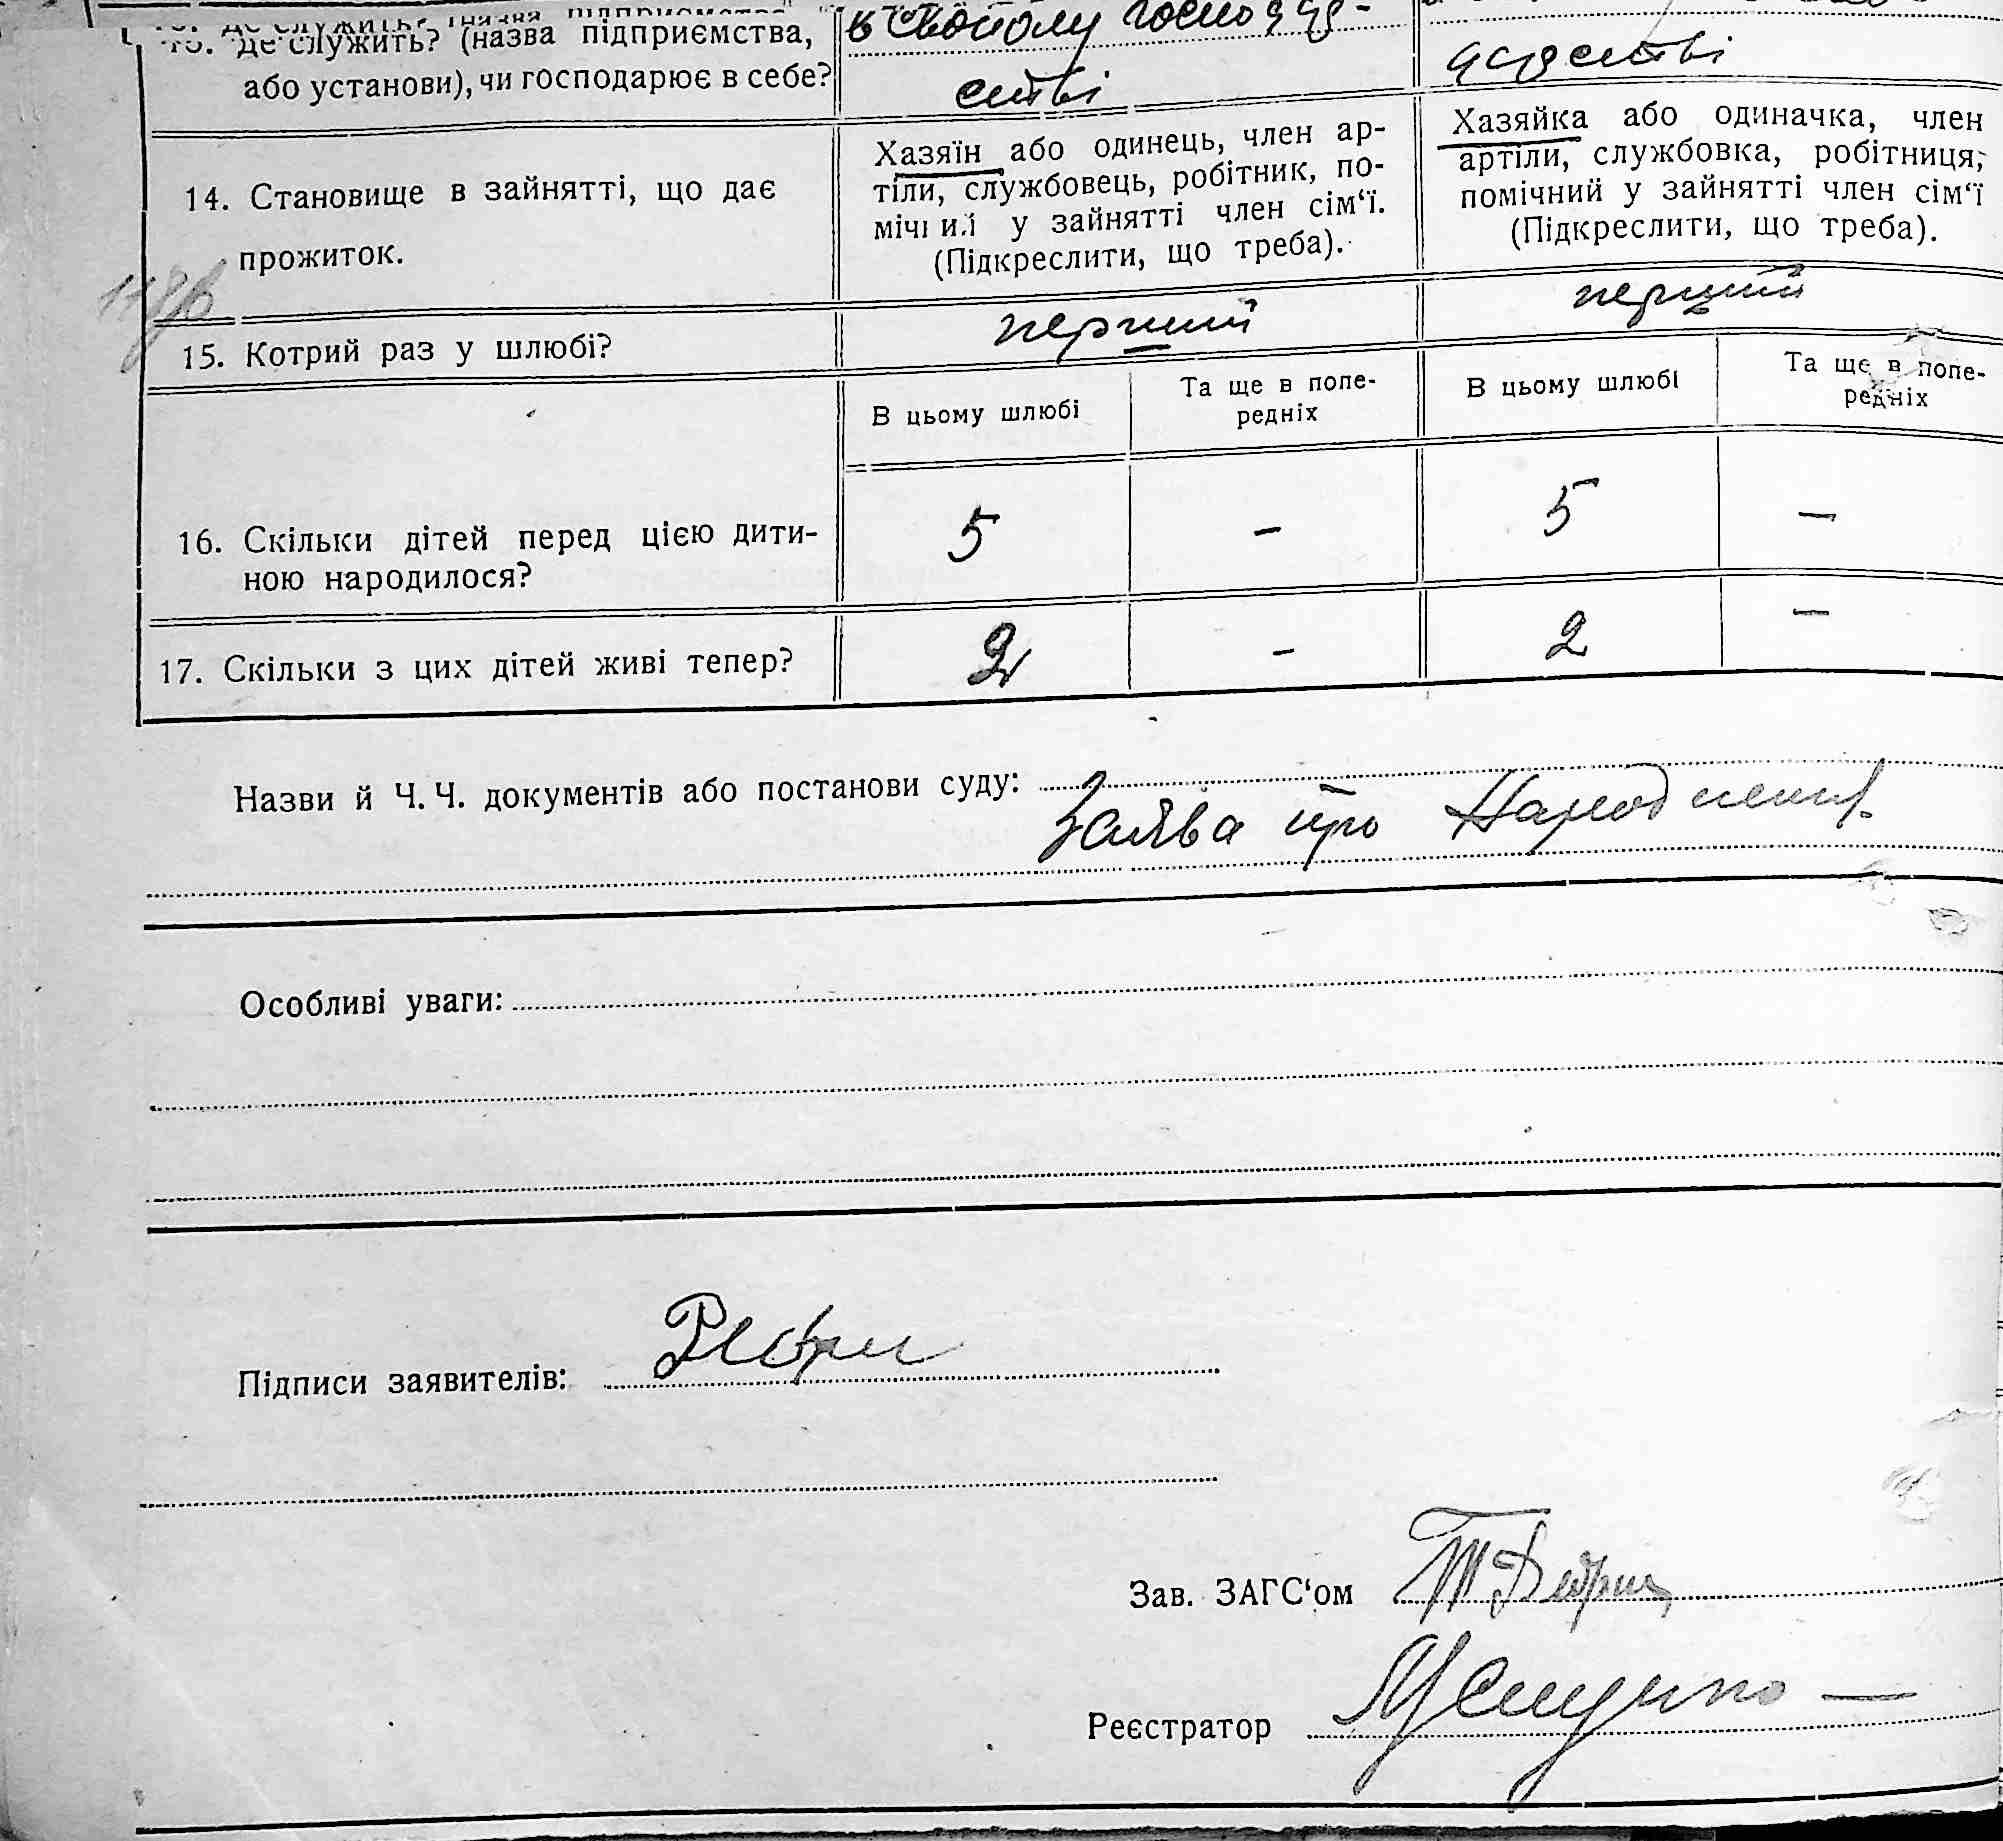 де служить? (назва підприємства,
або установи), чи господарює в себе?
в своєму господар-
стві
дарстві
14. Становище в зайнятті, що дає
прожиток.
Хазяїн або одинець, член ар-
тіли, службовець, робітник, по-
мічний у зайнятті член сім‘ї.
(Підкреслити, що треба).
Хазяйка або одиначка, член
артіли, службовка, робітниця,
помічний у зайнятті член сім‘ї
(Підкреслити, що треба).
15. Котрий раз у шлюбі?
перший
перший
В цьому шлюбі
Та ще в попе-
редніх
В цьому шлюбі
Та ще в попе-
редніх
16. Скільки дітей перед цією дити-
ною народилося?
5 - 5 -
17. Скільки з цих дітей живі тепер?
2 - 2 -
Назви й Ч. Ч. документів або постанови суду:
Заява про народження
Особливі уваги:
Підписи заявителів:
Зав. ЗАГС‘ом
Реєстратор